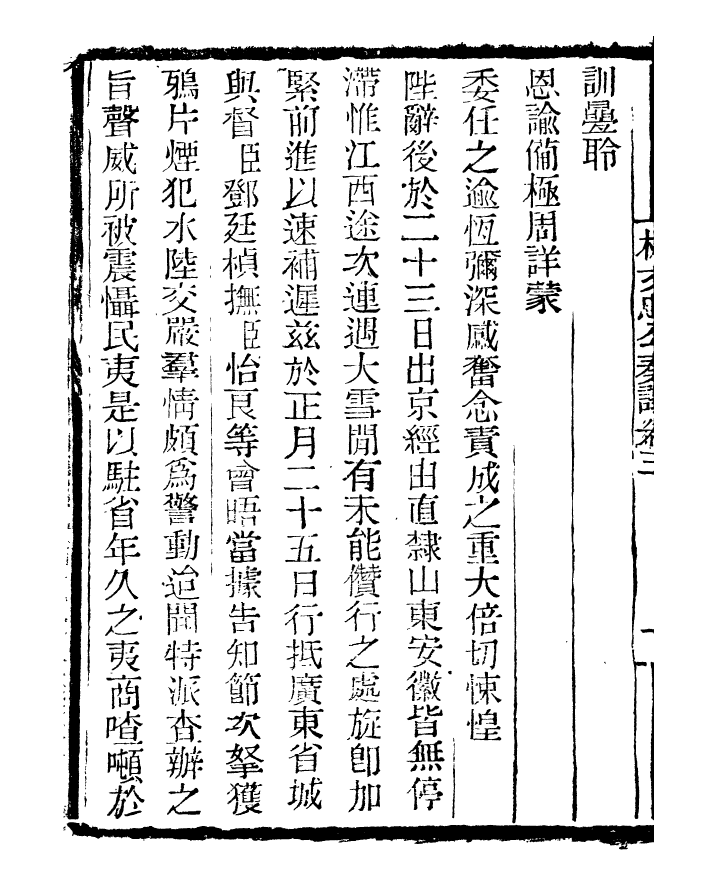 訓疊聆
恩諭備極周詳蒙
委任之逾恆彌深感奮念責成之重大倍切悚惶
陛辭後於二十三日出京經由直隸山東安徽皆無停
滯惟江西途次連遇大雪閒有未能儹行之處旋卽加
緊前進以速補遲兹於正月二十五日行抵廣東省城
與督臣鄧廷楨撫臣怡良等會晤當據吿知節次拏獲
鴉片煙犯水陸交嚴羣情頗爲警動迨聞特派查辦之
旨聲威所被震懾民夷是以駐省年久之夷商喳噸於
林文忠公奏議卷三